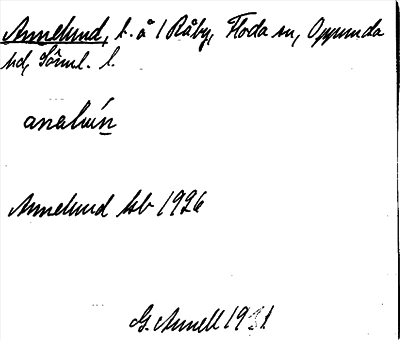 Annelund, t. å 1 Råby, Floda sn, Oppunda
hd, Söml. l.
Annelund hb 1926
G. Annell 1931